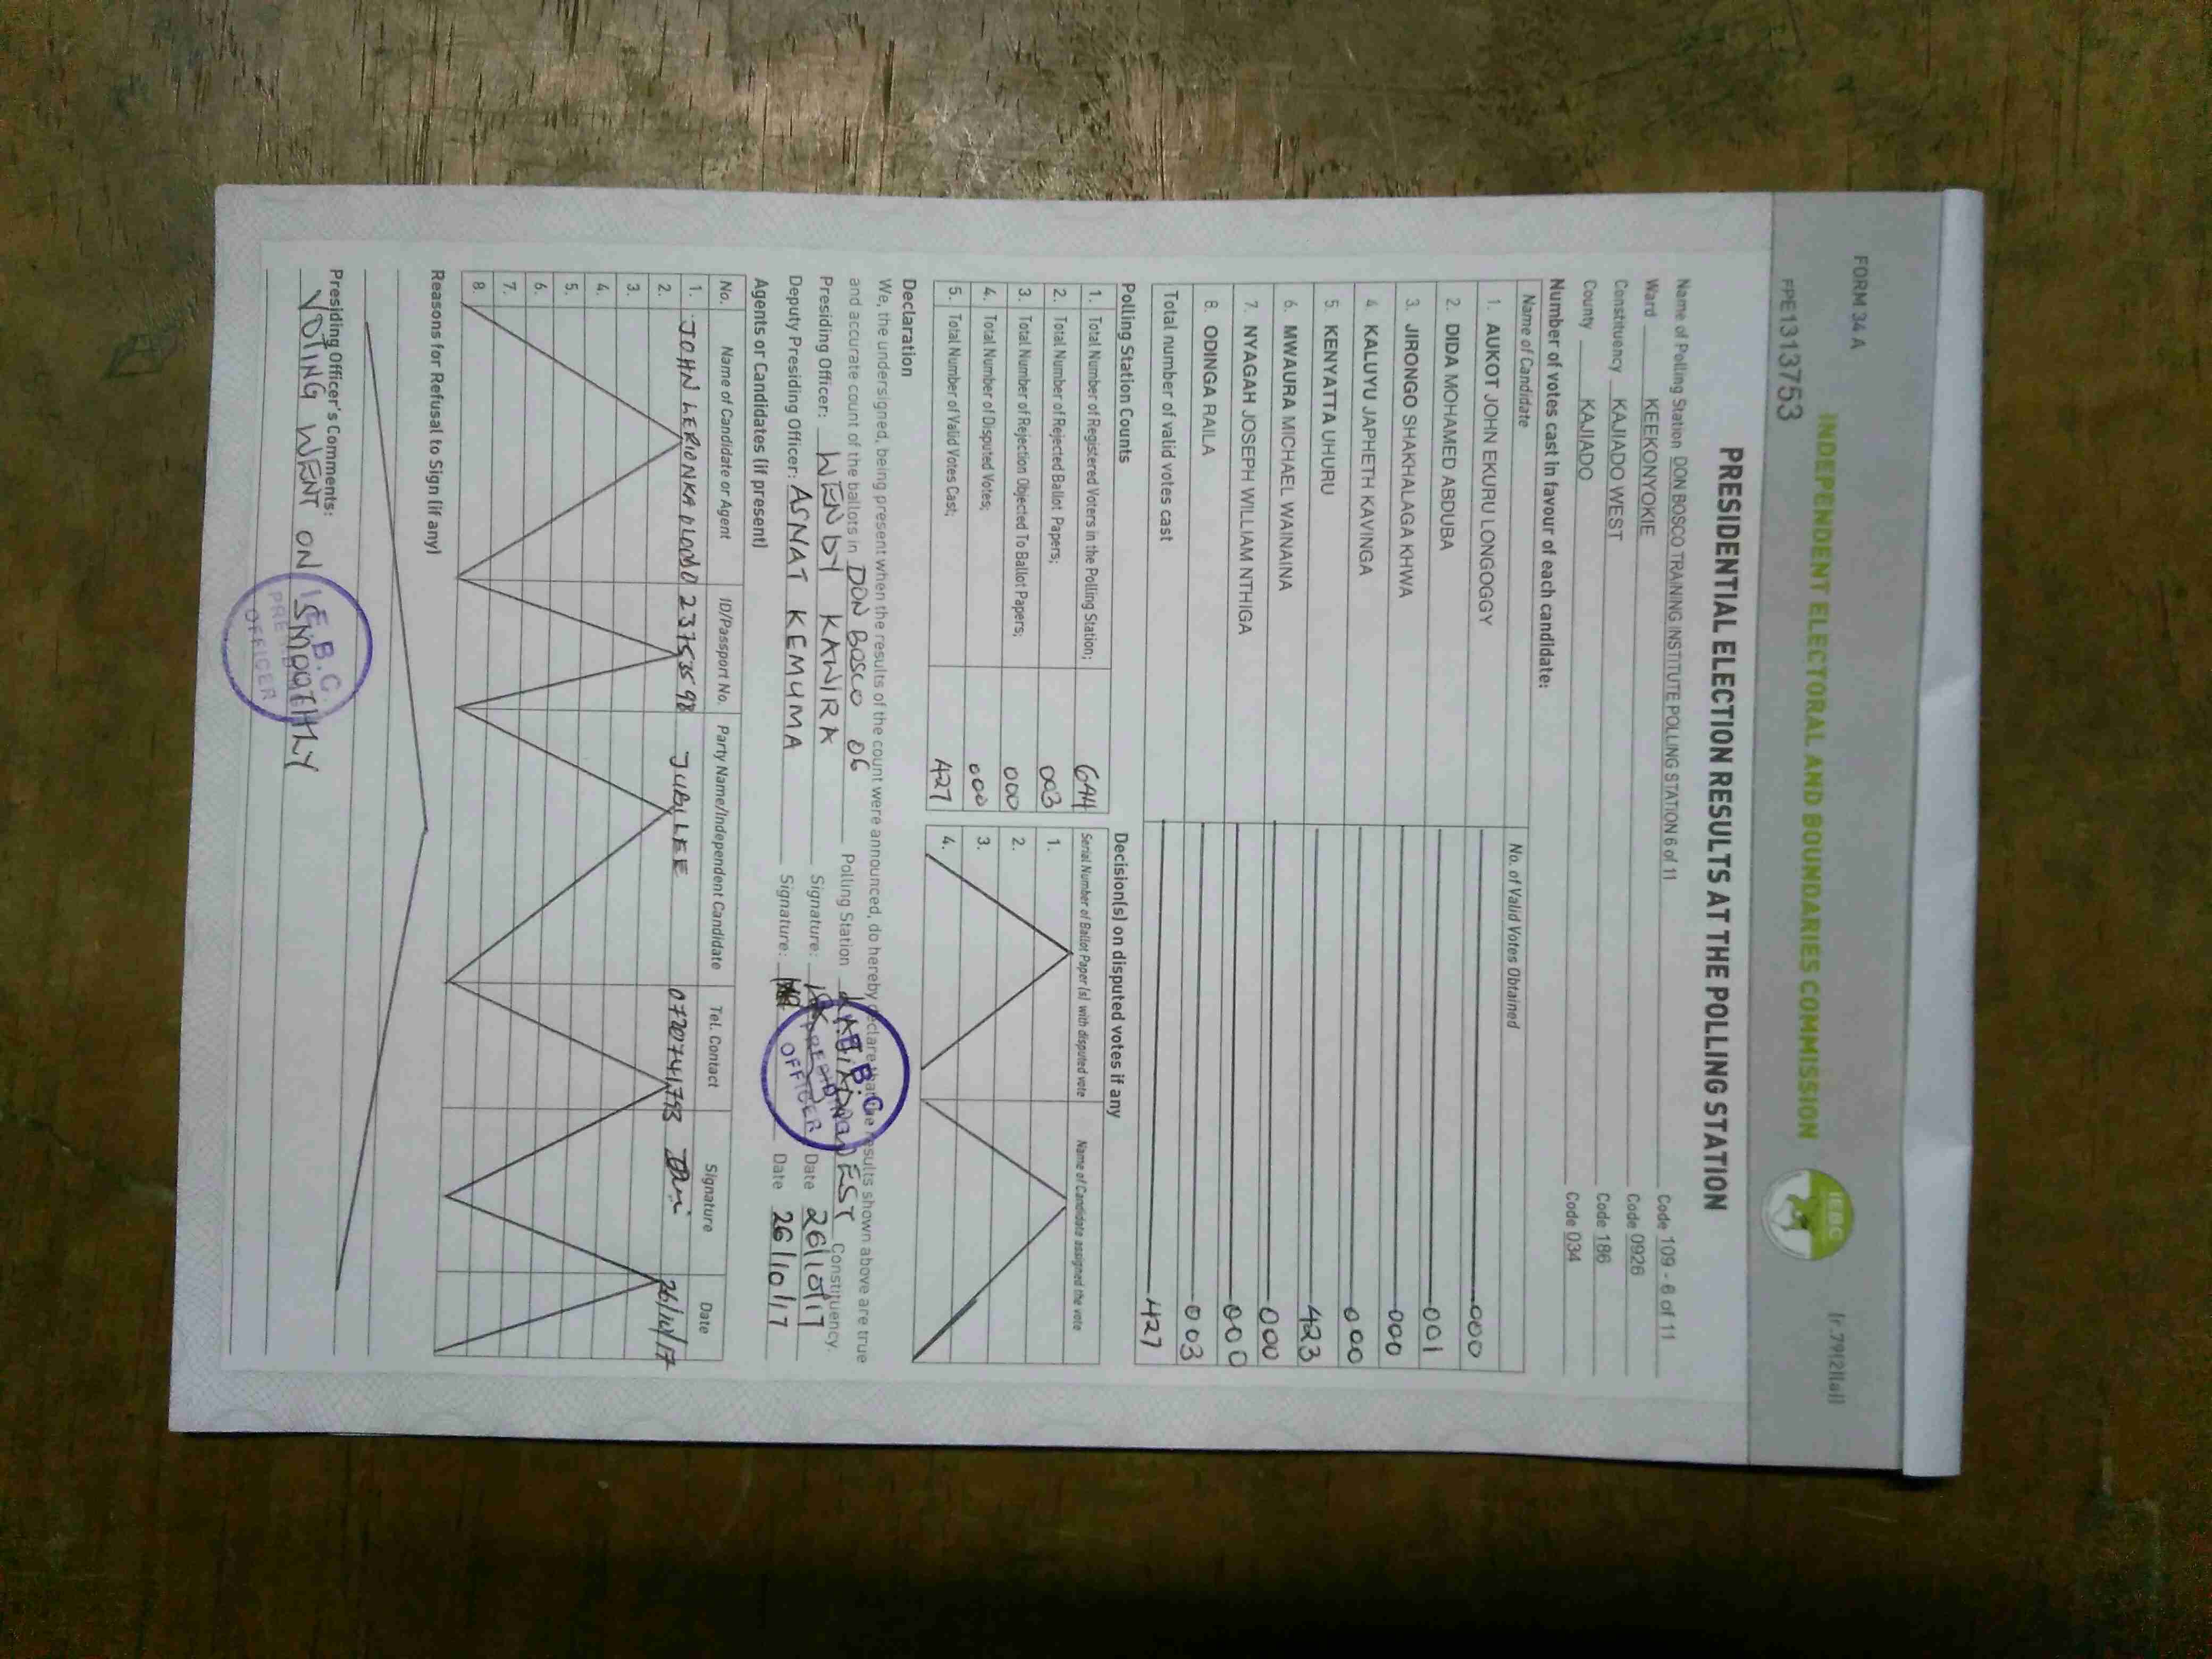 FORM 34A
[r.79(2)(a)]
INDEPENDENT ELECTORAL AND BOUNDARIES COMMISSION
IEBC
FPE1313753
PRESIDENTIAL ELECTION RESULTS AT THE POLLING STATION
Name of Polling Station DON BOSCO TRAINING INSTITUTE POLLING STATION 6 of 11 Code 109 - 6 of 11
Ward KEEKONYOKIE Code 0926
Constituency KAJIADO WEST Code 186
County KAJIADO Code 034
Number of votes cast in favour of each candidate:
Name of Candidate No. of Valid Votes Obtained
1. AUKOT JOHN EKURU LONGOGGY 000
2. DIDA MOHAMED ABDUBA 001
3. JIRONGO SHAKHALAGA KHWA 000
4 KALUYU JAPHETH KAVINGA 000
5. KENYATTA UHURU 423
6. MWAURA MICHAEL WAINAINA 000
7. NYAGAH JOSEPH WILLIAM NTHIGA 000
8. ODINGA RAILA 003
Total number of valid votes cast 427
Polling Station Counts Decision(s) on disputed votes if any
1. Total Number of Registered Voters in the Polling Station; 644 Serial Number of Ballot Paper(s) with disputed vote Name of Candidate assigned the vote
2. Total Number of Rejected Ballot Papers; 003 1.
3. Total Number of Rejection Objected To Ballot Papers; 000 2.
4. Total Number of Disputed Votes; 000 3.
5. Total Number of Valid Votes Cast; 427 4.
Declaration
We, the undersigned, being present when the results of the count were announced, do hereby declare that the results shown above are true
and accurate count of the ballots in DON BOSCO 06 Polling Station KAJIADO WEST Constituency.
Presiding Officer: WENDY KAWIRA Signature: Date 26/10/17
Deputy Presiding Officer: ASNAT KEMUMA Signature: Date 26/10/17
I.E.B.C PRESIDING OFFICER
Agents or Candidates (if present)
No. Name of Candidate or Agent ID/Passport No. Party Name/Independent Candidate Tel. Contact Signature Date
1. JOHN LERIONKA 23753598 JUBILEE 0720741793 26/10/17
2.
3.
4.
5.
6.
7.
8.
Reasons for Refusal to Sign (if any)
Presiding Officer's Comments:
VOTING WENT ON SMOOTHLY
I.E.B.C PRESIDING OFFICER